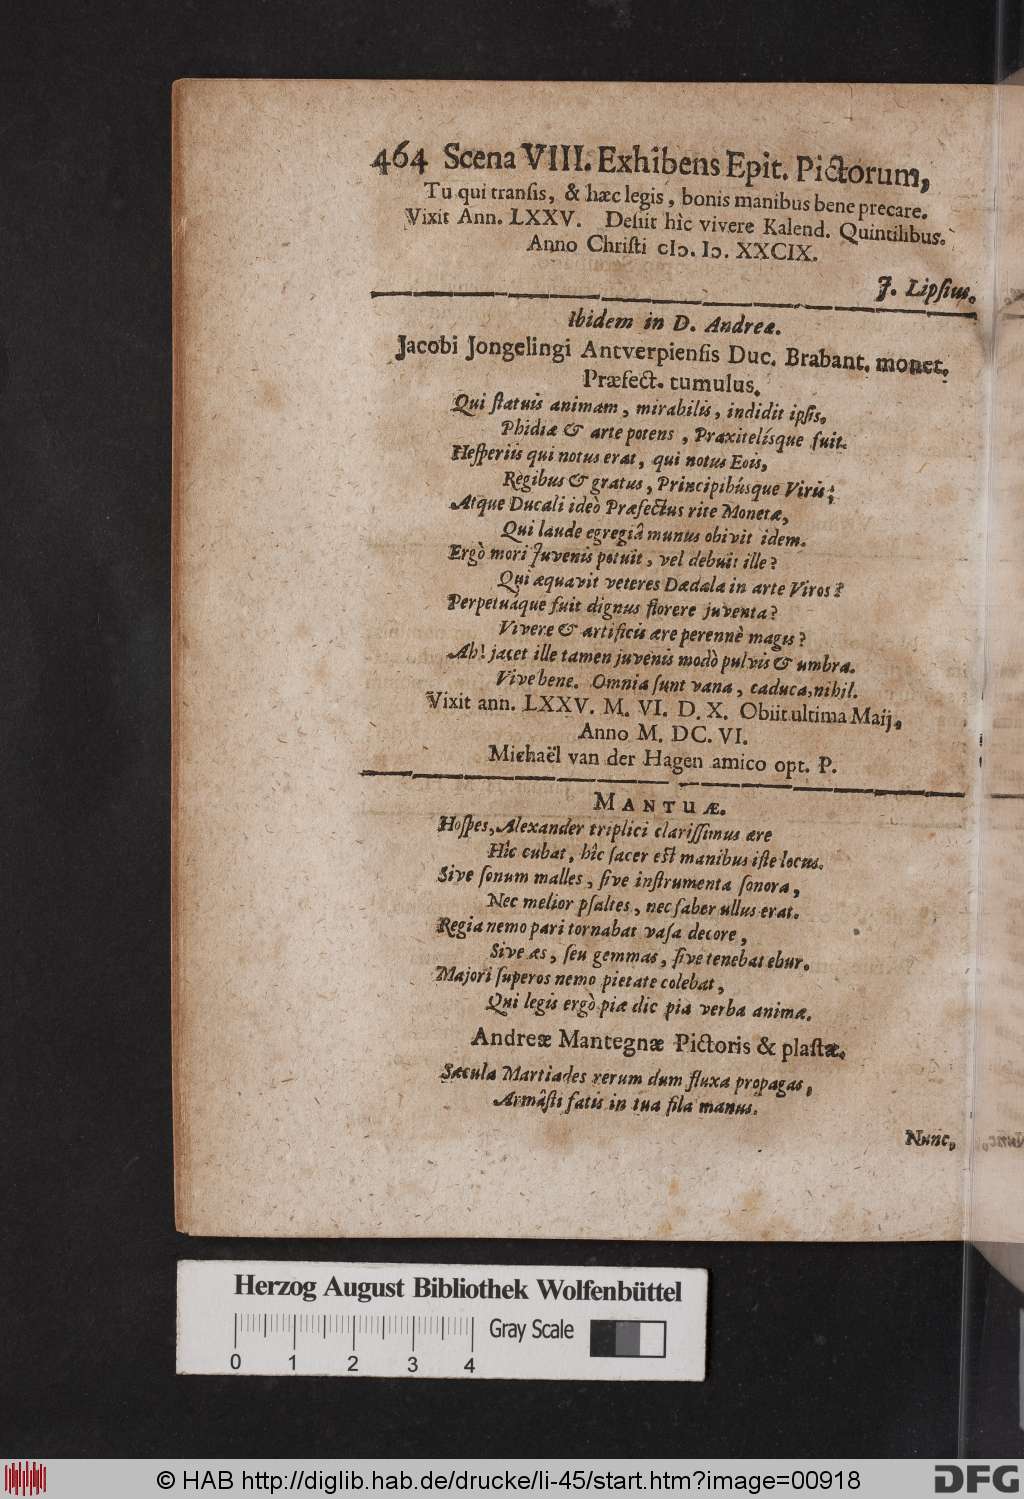 464 Scena VIII. Exhibens Epit. Pictorum,
Tu qui tranſis, & hæc legis, bonis manibus bene precare.
Vixit Ann. LXXV. Deſiit hîc vivere Kalend. Quintilibus.
Anno Chriſti cIɔ. Iɔ. XXCIX.
J. Lipſius.
Ibidem in D. Andreæ.
Jacobi Jongelingi Antverpienſis Duc. Brabant. monet.
Præfect. tumulus.
Qui ſtatuis animam, mirabilis, indidit ipſis,
Phidiæ & arte potens, Praxitelísque fuit.
Heſperiis qui notus erat, qui notus Eois,
Regibus & gratus, Principibúsque Viris;
Atque Ducali ideò Præfectus rite Monetæ,
Qui laude egregiâ munus obivit idem.
Ergò mori Juvenis potuit, vel debuit ille?
Qui æquavit veteres Dædala in arte Viros?
Perpetuáque fuit dignus florere juventa?
Vivere & artificis ære perennè magis?
Ah! jacet ille tamen juvenis modò pulvis & umbra.
Vive bene. Omnia ſunt vana, caduca, nihil.
Vixit ann. LXXV. M. VI. D. X. Obiit ultima Maij,
Anno M. DC. VI.
Michaël van der Hagen amico opt. P.
MANTUÆ.
Hoſpes, Alexander triplici clariſſimus ære
Hîc cubat, hîc ſacer eſt manibus iſte locus.
Sive ſonum malles, ſive inſtrumenta ſonora,
Nec melior pſaltes, nec faber ullus erat.
Regia nemo pari tornabat vaſa decore,
Sive æs, ſeu gemmas, ſive tenebat ebur.
Majori ſuperos nemo pietate colebat,
Qui legis ergò piæ dic pia verba animæ.
Andreæ Mantegnæ Pictoris & plaſtæ.
Sæcula Martiades rerum dum fluxa propagas,
Armâſti fatis in tua fila manus.
Nunc,
Herzog August Bibliothek Wolfenbüttel
Gray Scale
0 1 2 3 4
© HAB http://diglib.hab.de/drucke/li-45/start.htm?image=00918
DFG